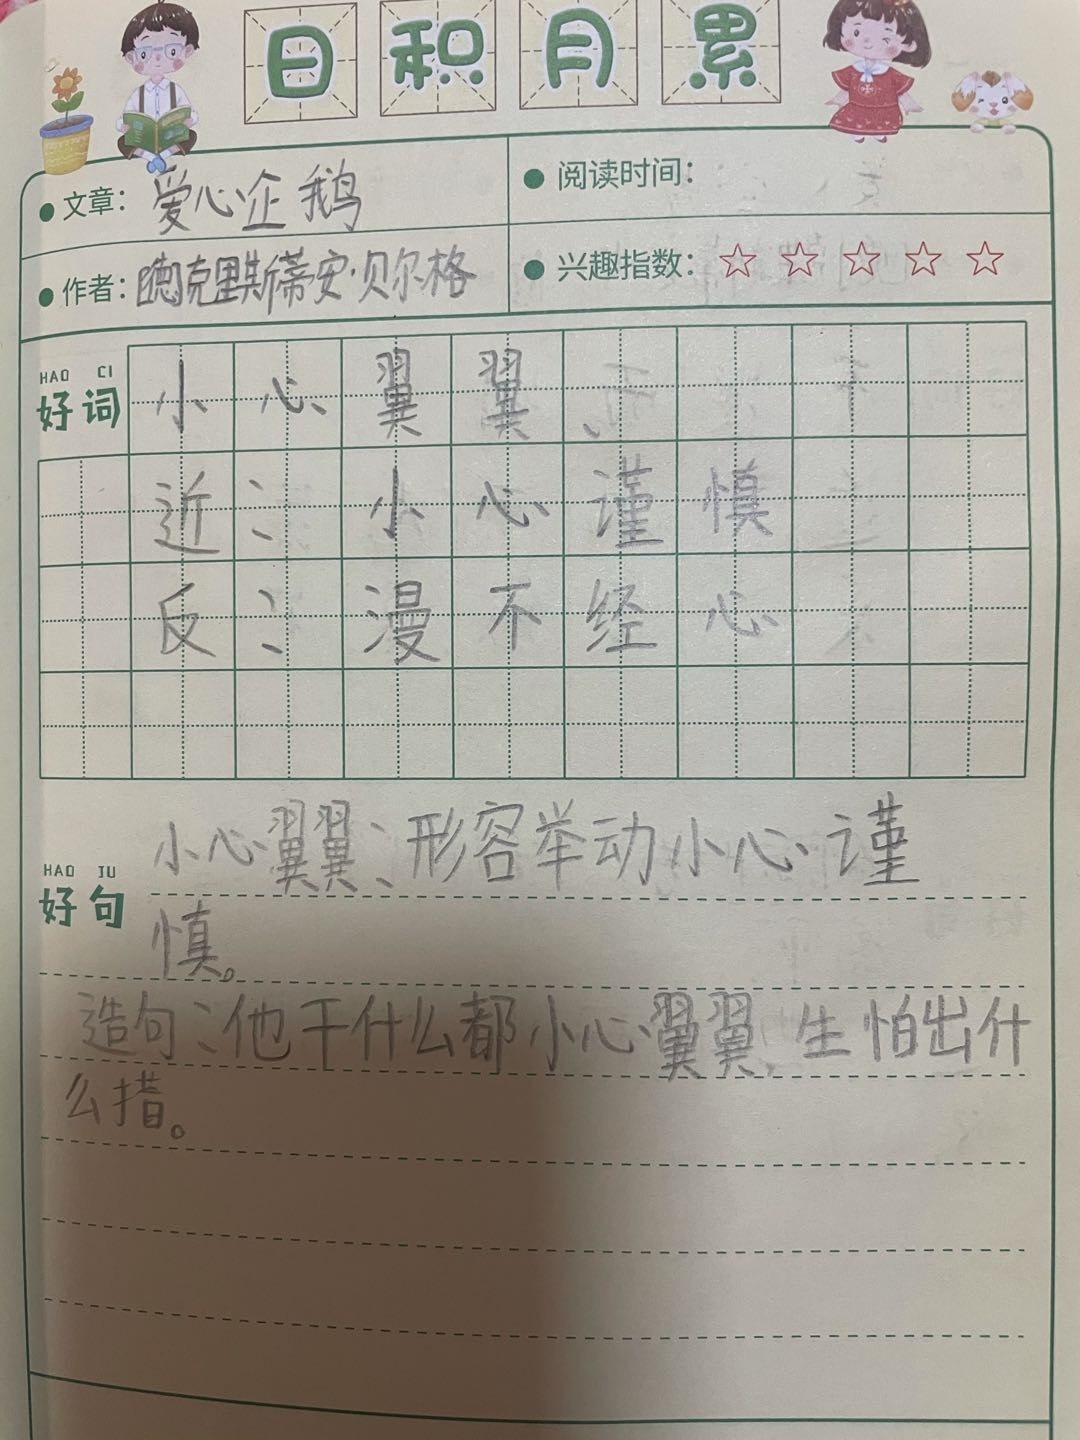 日积月累
文章：爱心企鹅
阅读时间：
作者：德克里斯蒂安·贝尔格
兴趣指数：☆☆☆☆☆
HAO CI
好词
小心翼翼、
近：小心谨慎
反：漫不经心
HAO JU
好句
小心翼翼：形容举动小心谨
慎。
造句：他干什么都小心翼翼，生怕出什
么措。